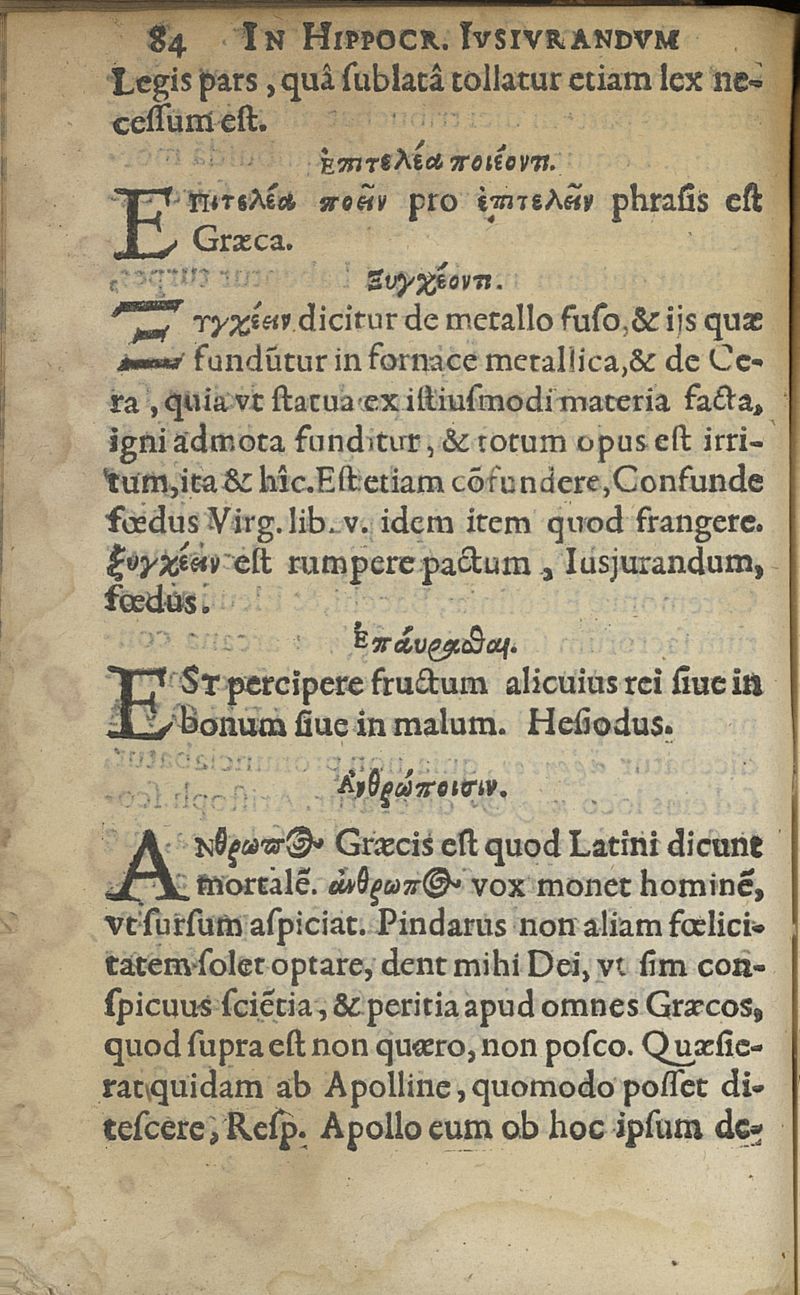 84 IN HIPPOCR. IVSIVRANDVM
Legis pars, quâ ſublatâ tollatur etiam lex ne-
ceſſum eſt.
Ἐπιτελέα ποιέοντι.
ΕΠιτελέα ποεῖν pro ἐπιτελεῖν phraſis eſt
Græca.
Ξυγχέοντι.
ΞΥγχέειν dicitur de metallo fuſo, & ijs quæ
fundūtur in fornace metallica, & de Ce-
ra, quia vt ſtatua ex iſtiuſmodi materia facta,
igni admota funditur, & totum opus eſt irri-
tum, ita & hîc. Eſt etiam cōfundere, Confunde
fœdus Virg. lib. v. idem item quod frangere.
ξυγχέειν eſt rumpere pactum, Iusjurandum,
fœdus.
Ἐπάυρασθαι.
EST percipere fructum alicuius rei ſiue in
bonum ſiue in malum. Heſiodus.
Ἀνθρώποισιν.
ΑΝθρωπος Græcis eſt quod Latini dicunt
mortalē. ἄνθρωπος vox monet hominē,
vt ſurſum aſpiciat. Pindarus non aliam fœlici-
tatem ſolet optare, dent mihi Dei, vt ſim con-
ſpicuus ſciētia, & peritia apud omnes Græcos,
quod ſupra eſt non quæro, non poſco. Quæſie-
rat quidam ab Apolline, quomodo poſſet di-
teſcere, Reſp. Apollo eum ob hoc ipſum de-